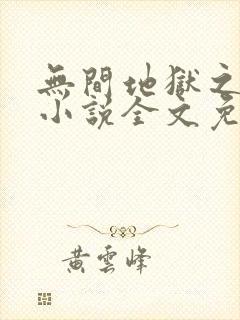 無間地獄之
小説全文免
黃雲峰